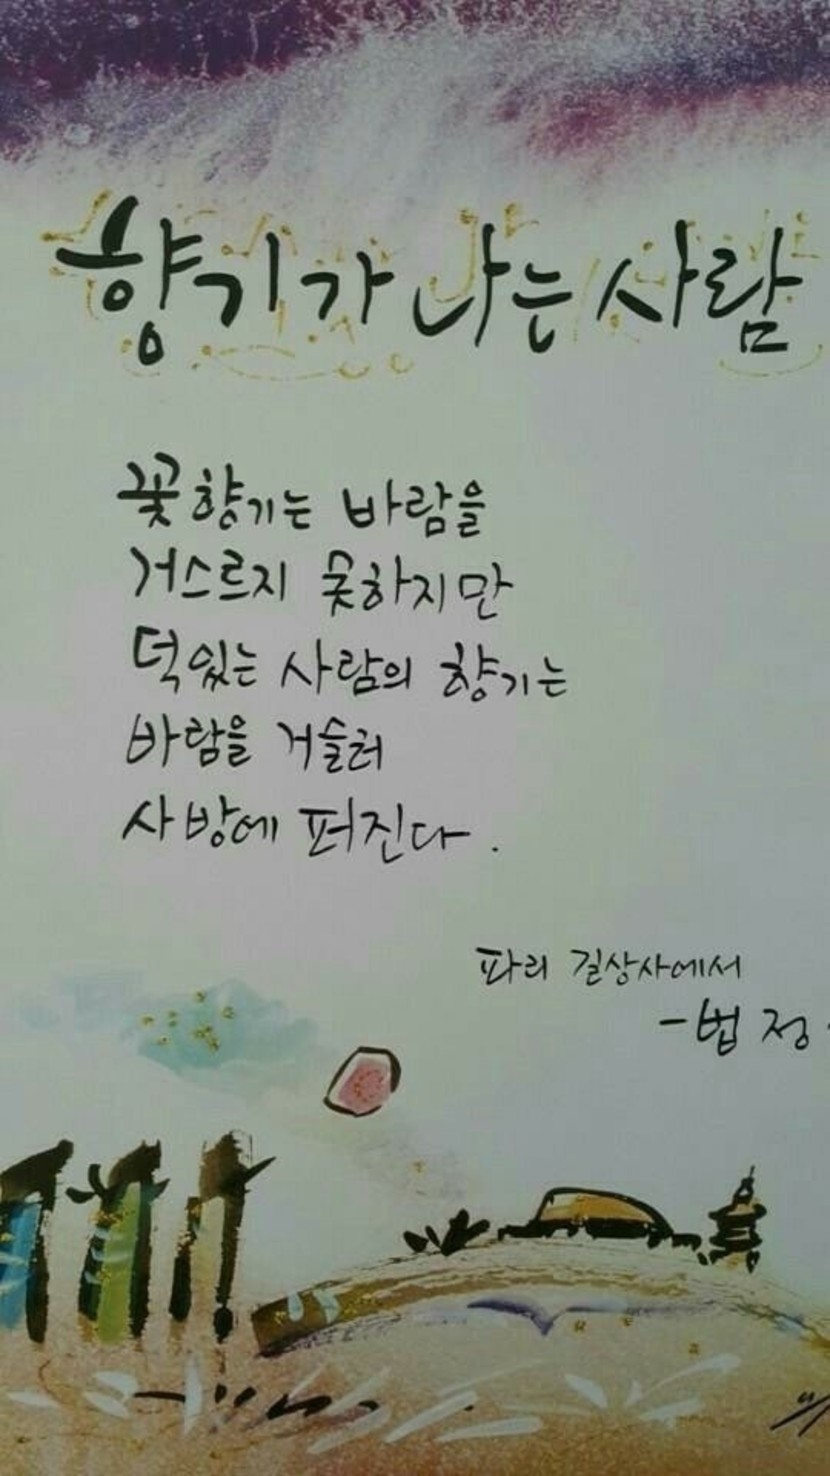 향기가 나는 사람
꽃향기는 바람을
거스르지 못하지만
덕있는 사람의 향기는
바람을 거슬러
사방에 퍼진다.
파리 길상사에서
-법정